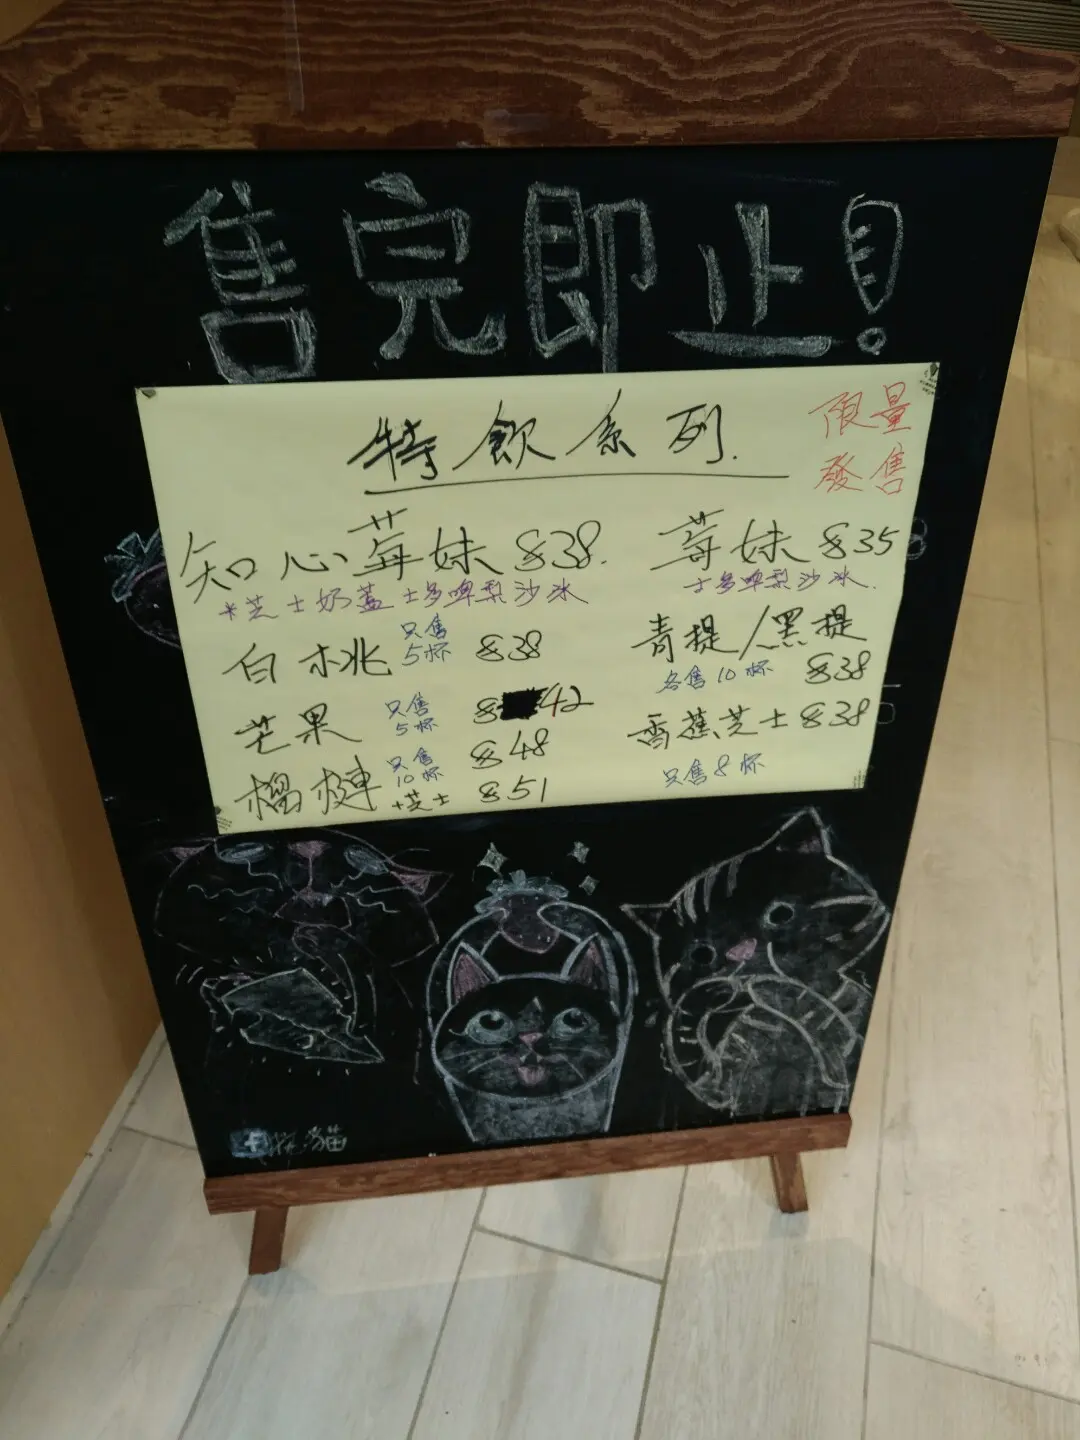 售完即止!
特飲系列.
限量
發售
知心莓妹 $38.
芝士奶蓋士多啤梨沙冰
莓妹 $35
士多啤梨沙冰.
白桃 只售5杯 $38
青提/黑提
各售10杯 $38
芒果 只售5杯 $42
香蕉芝士 $38
只售8杯
榴槤 只售10杯 $48
+芝士 $51
貓